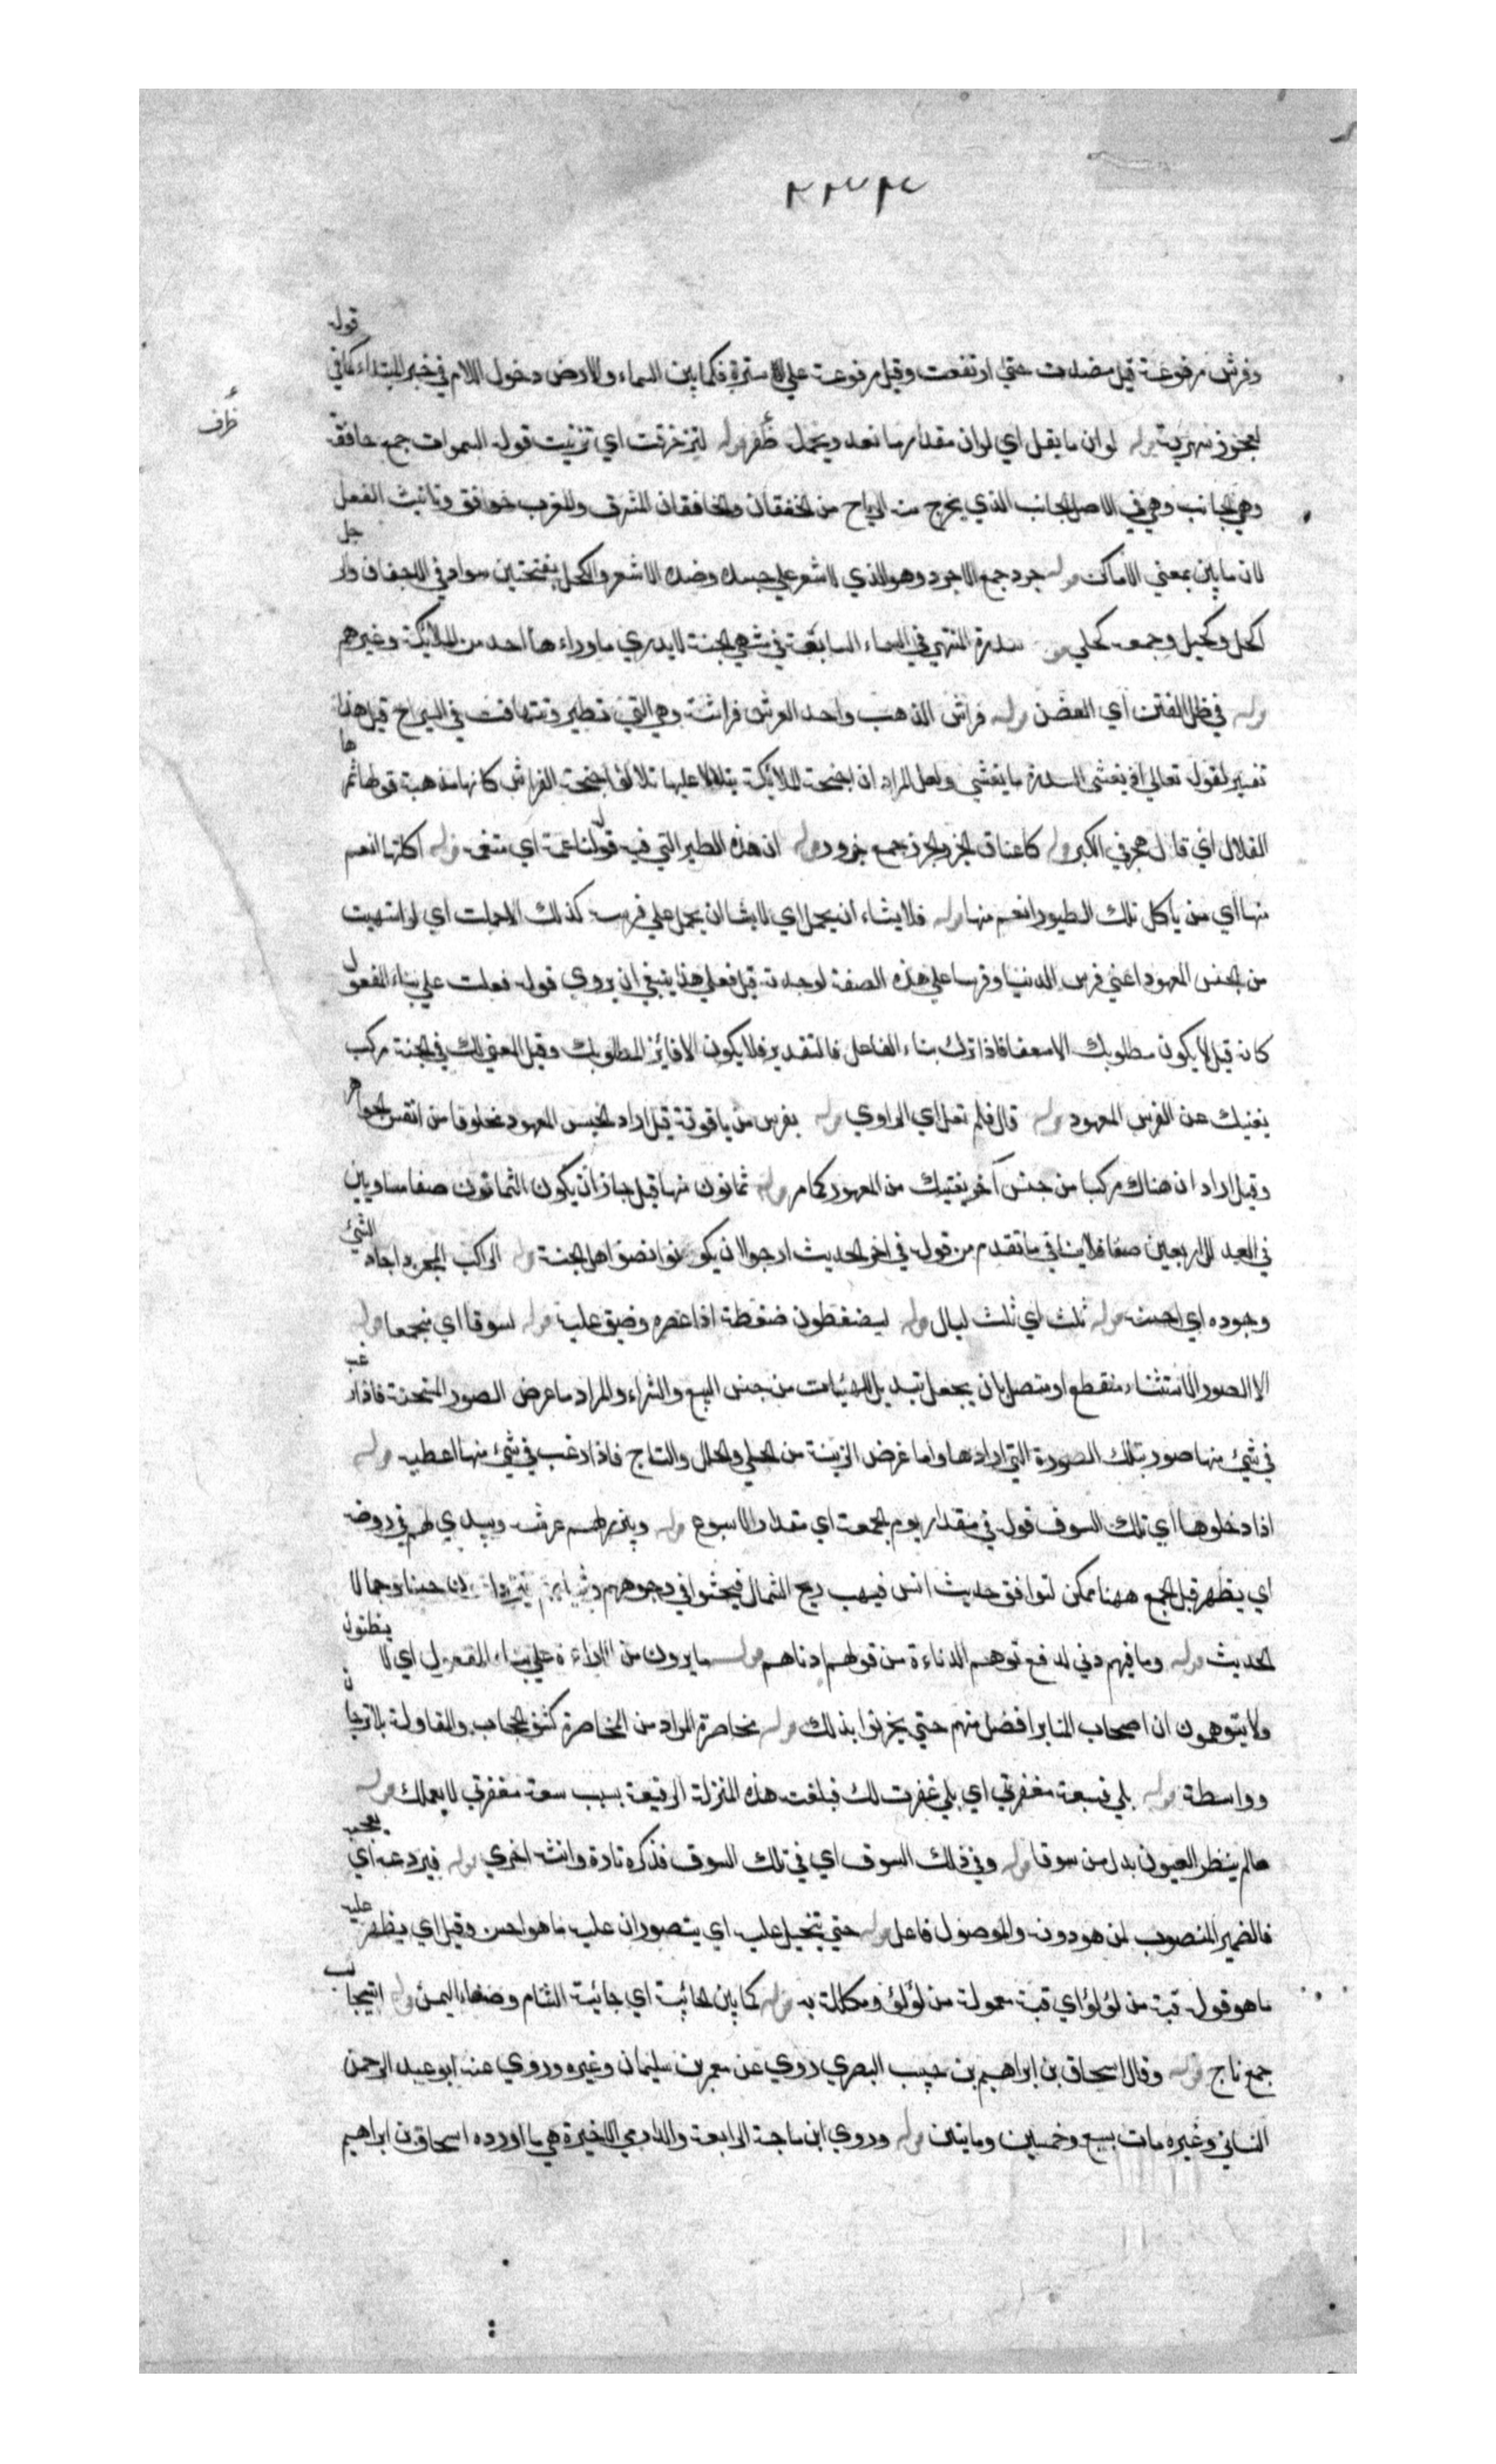 ٢٣٣
قوله
وفرش مرفوعة قيل نضدت حتى ارتفعت وقيل مرفوعة علي الاسترة فكما بين السماء والارض دخول اللام في خبر المبتداء كما في
ظرف
لعجوز شهربة قوله لو ان ما يقل اي لو ان مقدار ما نعد ويحمل ظفر قوله لتزخرفت اي تزينت قوله السموات جمع خافقة
وهي الجانب وهي في الاصل الجانب الذي يخرج منه الرياح من الخفقان والخافقان المشرق والمغرب خوافق وتانيث الفعل
لان ما بين بمعني الاماكن قوله جرد جمع الاجرد وهو الذي لا شعر علي جسده وضده الاشعر والكحل بفتحتين سواد في الاجفان رجل
اكحل وكحيل وجمعه كحلي قوله سدرة المنتهي في السماء السابعة في منتهي الجنة لا يدري ما وراءها احد من الملائكة وغيرهم
قوله في ظل الفنن اي الغصن قوله فراش الذهب واحد الفرش فراشة وهي التي تطير وتتهافت في السراج قيل هذا
تفسير لقوله تعالي اذ يغشي السدرة ما يغشي ولعل المراد ان اجنحة الملائكة يتلالا عليها تلالؤ اجنحة الفراش كانها مذهبة قوله ثمرها
القلال اي قلال هجر في الكبر قوله كاعناق الجزر الجزر جمع جزور قوله ان هذه الطير التي فيه قوله لناعمة اي متنعمة قوله اكلتها انعم
منها اي من ياكل تلك الطيور انعم منها قوله فلا يشاء ان يحمل اي لا يشا ان يحمل علي فرس كذلك الاحملت اي لو اشتهيت
من الجنس المعهود اعني فرس الدنيا وفرسا علي هذه الصفة لوجدته قيل فعلي هذا ينبغي ان يروي قوله فعلت علي بناء المفعول
كانه قيل لا يكون مطلوبك الا مسعفا فاذا ترك بناء الفاعل فالتقدير فلا يكون الا فائز المطلوبك وقيل المعني لك في الجنة مركب
يغنيك عن الفرس المعهود قوله قال فلم تقل اي الراوي قوله بفرس من ياقوتة قيل اراد الجنس المعهود مخلوقا من انفس الجواهر
وقيل اراد ان هناك مركبا من جنس آخر يغنيك من المعهود كما مر قوله ثمانون منها قيل جاز ان يكون الثمانون صفا مساويين
في العدد للاربعين صفا فلا ينافي ما تقدم من قوله في آخر الحديث ارجوا ان يكونوا نصف اهل الجنة قوله الراكب المجود اجاد الشئ
وجوده اي احسنه قوله ثلث اي ثلث ليال قوله ليضغطون ضغطة اذا عصره وضيق عليه قوله لسوقا اي مجمعا قوله
الا الصور الاستثناء منقطع او متصل بان يجعل تبديل الهيئات من جنس البيع والشراء والمراد ما عرض الصور المستحسنة فاذا رغب
في شئ منها صور بتلك الصورة التي ارادها واما عرض الزينة من الحلي والحلل والتاج فاذا رغب في شئ منها اعطيه قوله
اذا دخلوها اي تلك السوق قوله في مقدار يوم الجمعة اي مقدار الاسبوع قوله ويبرز لهم عرشه ويبدي لهم في روضة
اي يظهر قيل الجمع ههنا ممكن لتوافق حديث انس فيهب ريح الشمال فيحثوا في وجوههم وثيابهم فيزدادون حسنا وجمالا
الحديث قوله وما فيهم دني لدفع توهم الدناءة من قولهم ادناهم قوله ما يرون من الاراءة علي بناء المفعول اي لا يظنون
ولا يتوهمون ان اصحاب المنابر افضل منهم حتي يحزنوا بذلك قوله محاضرة المراد من المحاضرة كشف الحجاب والمقاولة بلا ترجمان
وواسطة قوله بلي فبسعة مغفرتي اي بلي غفرت لك فبلغت هذه المنزلة الرفيعة بسبب سعة مغفرتي لا بعملك قوله
ما لم ينظر العيون بدل من سوقا قوله وفي ذلك السوق اي في تلك السوق فذكره تارة وانثه اخري قوله فيروعه اي يعجبه
فالضمير المنصوب لمن هو دونه والموصول فاعل قوله حتي يتخيل عليه اي يتصور ان عليه ما هو احسن وقيل اي يظهر عليه
ما هو قوله قبة من لؤلؤ اي قبة معمولة من لؤلؤ ومكللة به قوله كما بين الجابية اي جابية الشام وصنعاء اليمن قوله التيجان
جمع تاج قوله وقال اسحاق بن ابراهيم بن حبيب البصري روي عن معمر بن سليمان وغيره وروي عنه ابو عبد الرحمن
النسائي وغيره مات بسبع وخمسين ومايتين قوله وروي ابن ماجة الرابعة والدارمي الاخيرة هي ما اورده اسحاق بن ابراهيم